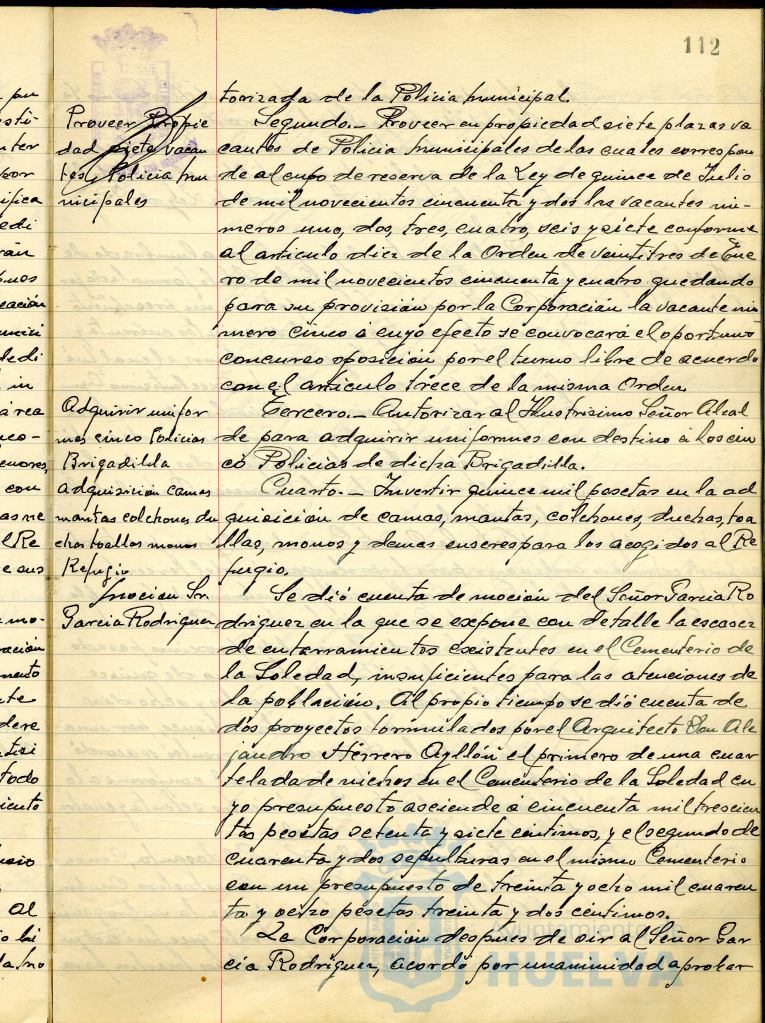 112
torizada de la Policia municipal.
Proveer Propie
dad siete vacan
tes Policia mu
nicipales
Segundo.- Proveer en propiedad siete plazas va
cantes de Policia municipales de las cuales correspon
de al cupo de reserva de la Ley de quince de Julio
de mil novecientos cincuenta y dos las vacantes nú-
meros uno, dos, tres, cuatro, seis y siete conforme
al articulo diez de la Orden de veintitres de Ene
ro de mil novecientos cincuenta y cuatro quedando
para su provisión por la Corporación la vacante nú
mero cinco á cuyo efecto se convocará el oportuno
concurso oposición por el turno libre de acuerdo
con el articulo trece de la misma Orden.
Adquirir unifor
mes cinco Policias
Brigadilla
Tercero.- Autorizar al Ilustrisimo Señor Alcal
de para adquirir uniformes con destino á los cin
co Policias de dicha Brigadilla.
adquisición camas
mantas colchones du
chas toallas monos
Refugio
Cuarto.- Invertir quince mil pesetas en la ad
quisición de camas, mantas, colchones, duchas, toa
llas, monos y demas enseres para los acogidos al Re
fugio.
moción Sr.
Garcia Rodriguez
Se dió cuenta de moción del Señor Garcia Ro
driguez en la que se expone con detalle la escasez
de enterramientos existentes en el Cementerio de
la Soledad, insuficientes para las atenciones de
la población. Al propio tiempo se dió cuenta de
dos proyectos formulados por el Arquitecto Don Ale
jandro Herrero Ayllón el primero de una cuar
telada de nichos en el Cementerio de la Soledad cu
yo presupuesto asciende á cincuenta mil trescien
tas pesetas setenta y siete centimos, y el segundo de
cuarenta y dos sepulturas en el mismo Cementerio
con un presupuesto de treinta y ocho mil cuaren
ta y ocho pesetas treinta y dos centimos.
La Corporación despues de oir al Señor Gar
cia Rodriguez, acordó por unanimidad aprobar
Ayuntamiento
HUELVA